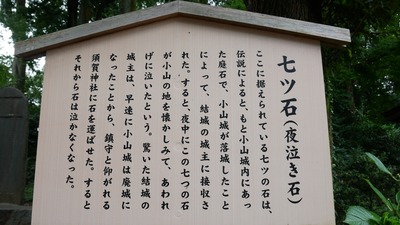 七ツ石(夜泣き石)
ここに据えられている七ツの石は、
伝説によると、もと小山城内にあっ
た庭石で、小山城が落城したこと
によって、結城の城主に接収さ
れた。すると、夜中にこの七つの石
が小山の地を懐かしみて、あわれ
げに泣いたという。驚いた結城の
城主は、早速に小山城は廃城に
なったことから、鎮守と仰がれる
須賀神社に石を運ばせた。すると
それから石は泣かなくなった。